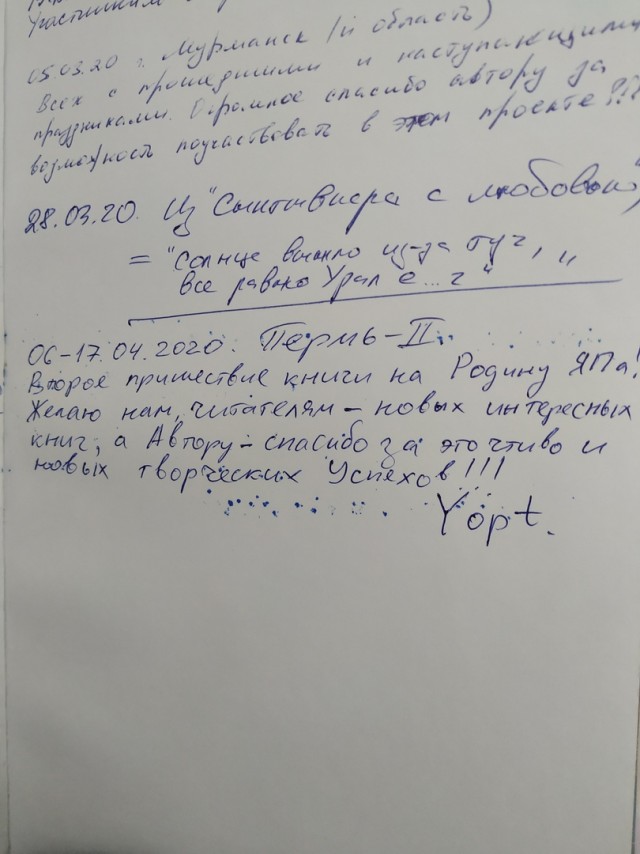 Участникам
05.03.20 г. Мурманск (и область)
Всех с прошедшими и наступающими
праздниками. Огромное спасибо автору за
возможность поучаствовать в этом проекте!!!
28.03.20. Из "Сыктывкара с любовью"
= "Солнце вышло из-за туч,
все равно Урал е...ч"
06-17.04.2020. Пермь-II.
Второе пришествие книги на Родину ЯПа!
Желаю нам, читателям - новых интересных
книг, а Автору - спасибо за это чтиво и
новых творческих Успехов!!!
Yopt.